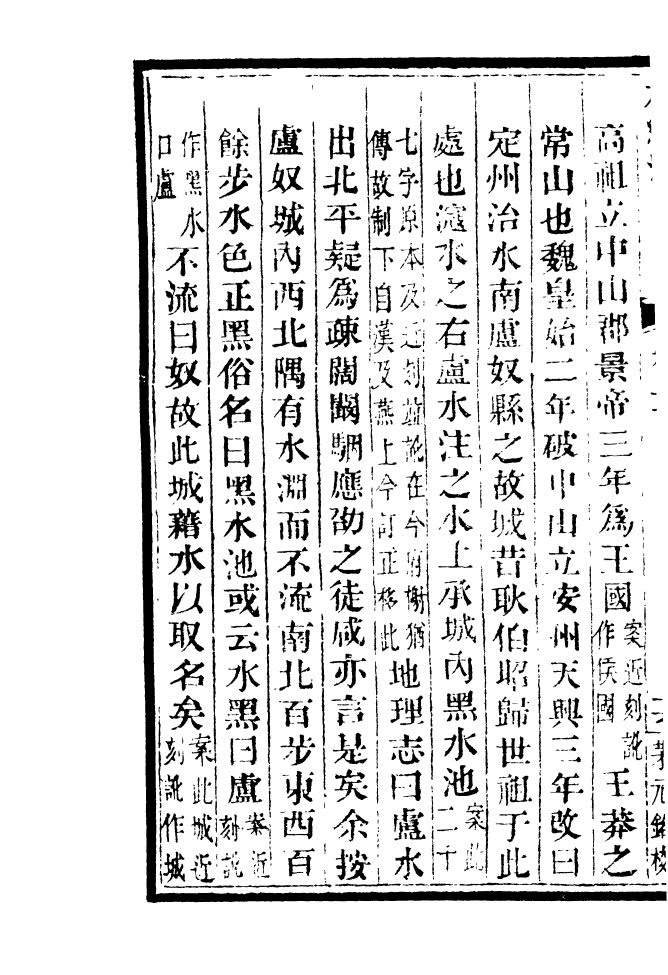 高祖立中山郡景帝三年爲王國案近刻訛作侯國王莽之
常山也魏皇始二年破中山立安州天興三年改曰
定州治水南盧奴縣之故城昔耿伯昭歸世祖于此
處也滱水之右盧水注之水上承城內黑水池案此二十
七字原本及近刻竝訛在今府榭猶傳故制下自漢及燕上今訂正移此地理志曰盧水
出北平疑爲疎闊闞駰應劭之徒咸亦言是矣余按
盧奴城內西北隅有水淵而不流南北百步東西百
餘步水色正黑俗名曰黑水池或云水黑曰盧案近刻訛
作黑水曰盧不流曰奴故此城藉水以取名矣案此城近刻訛作城